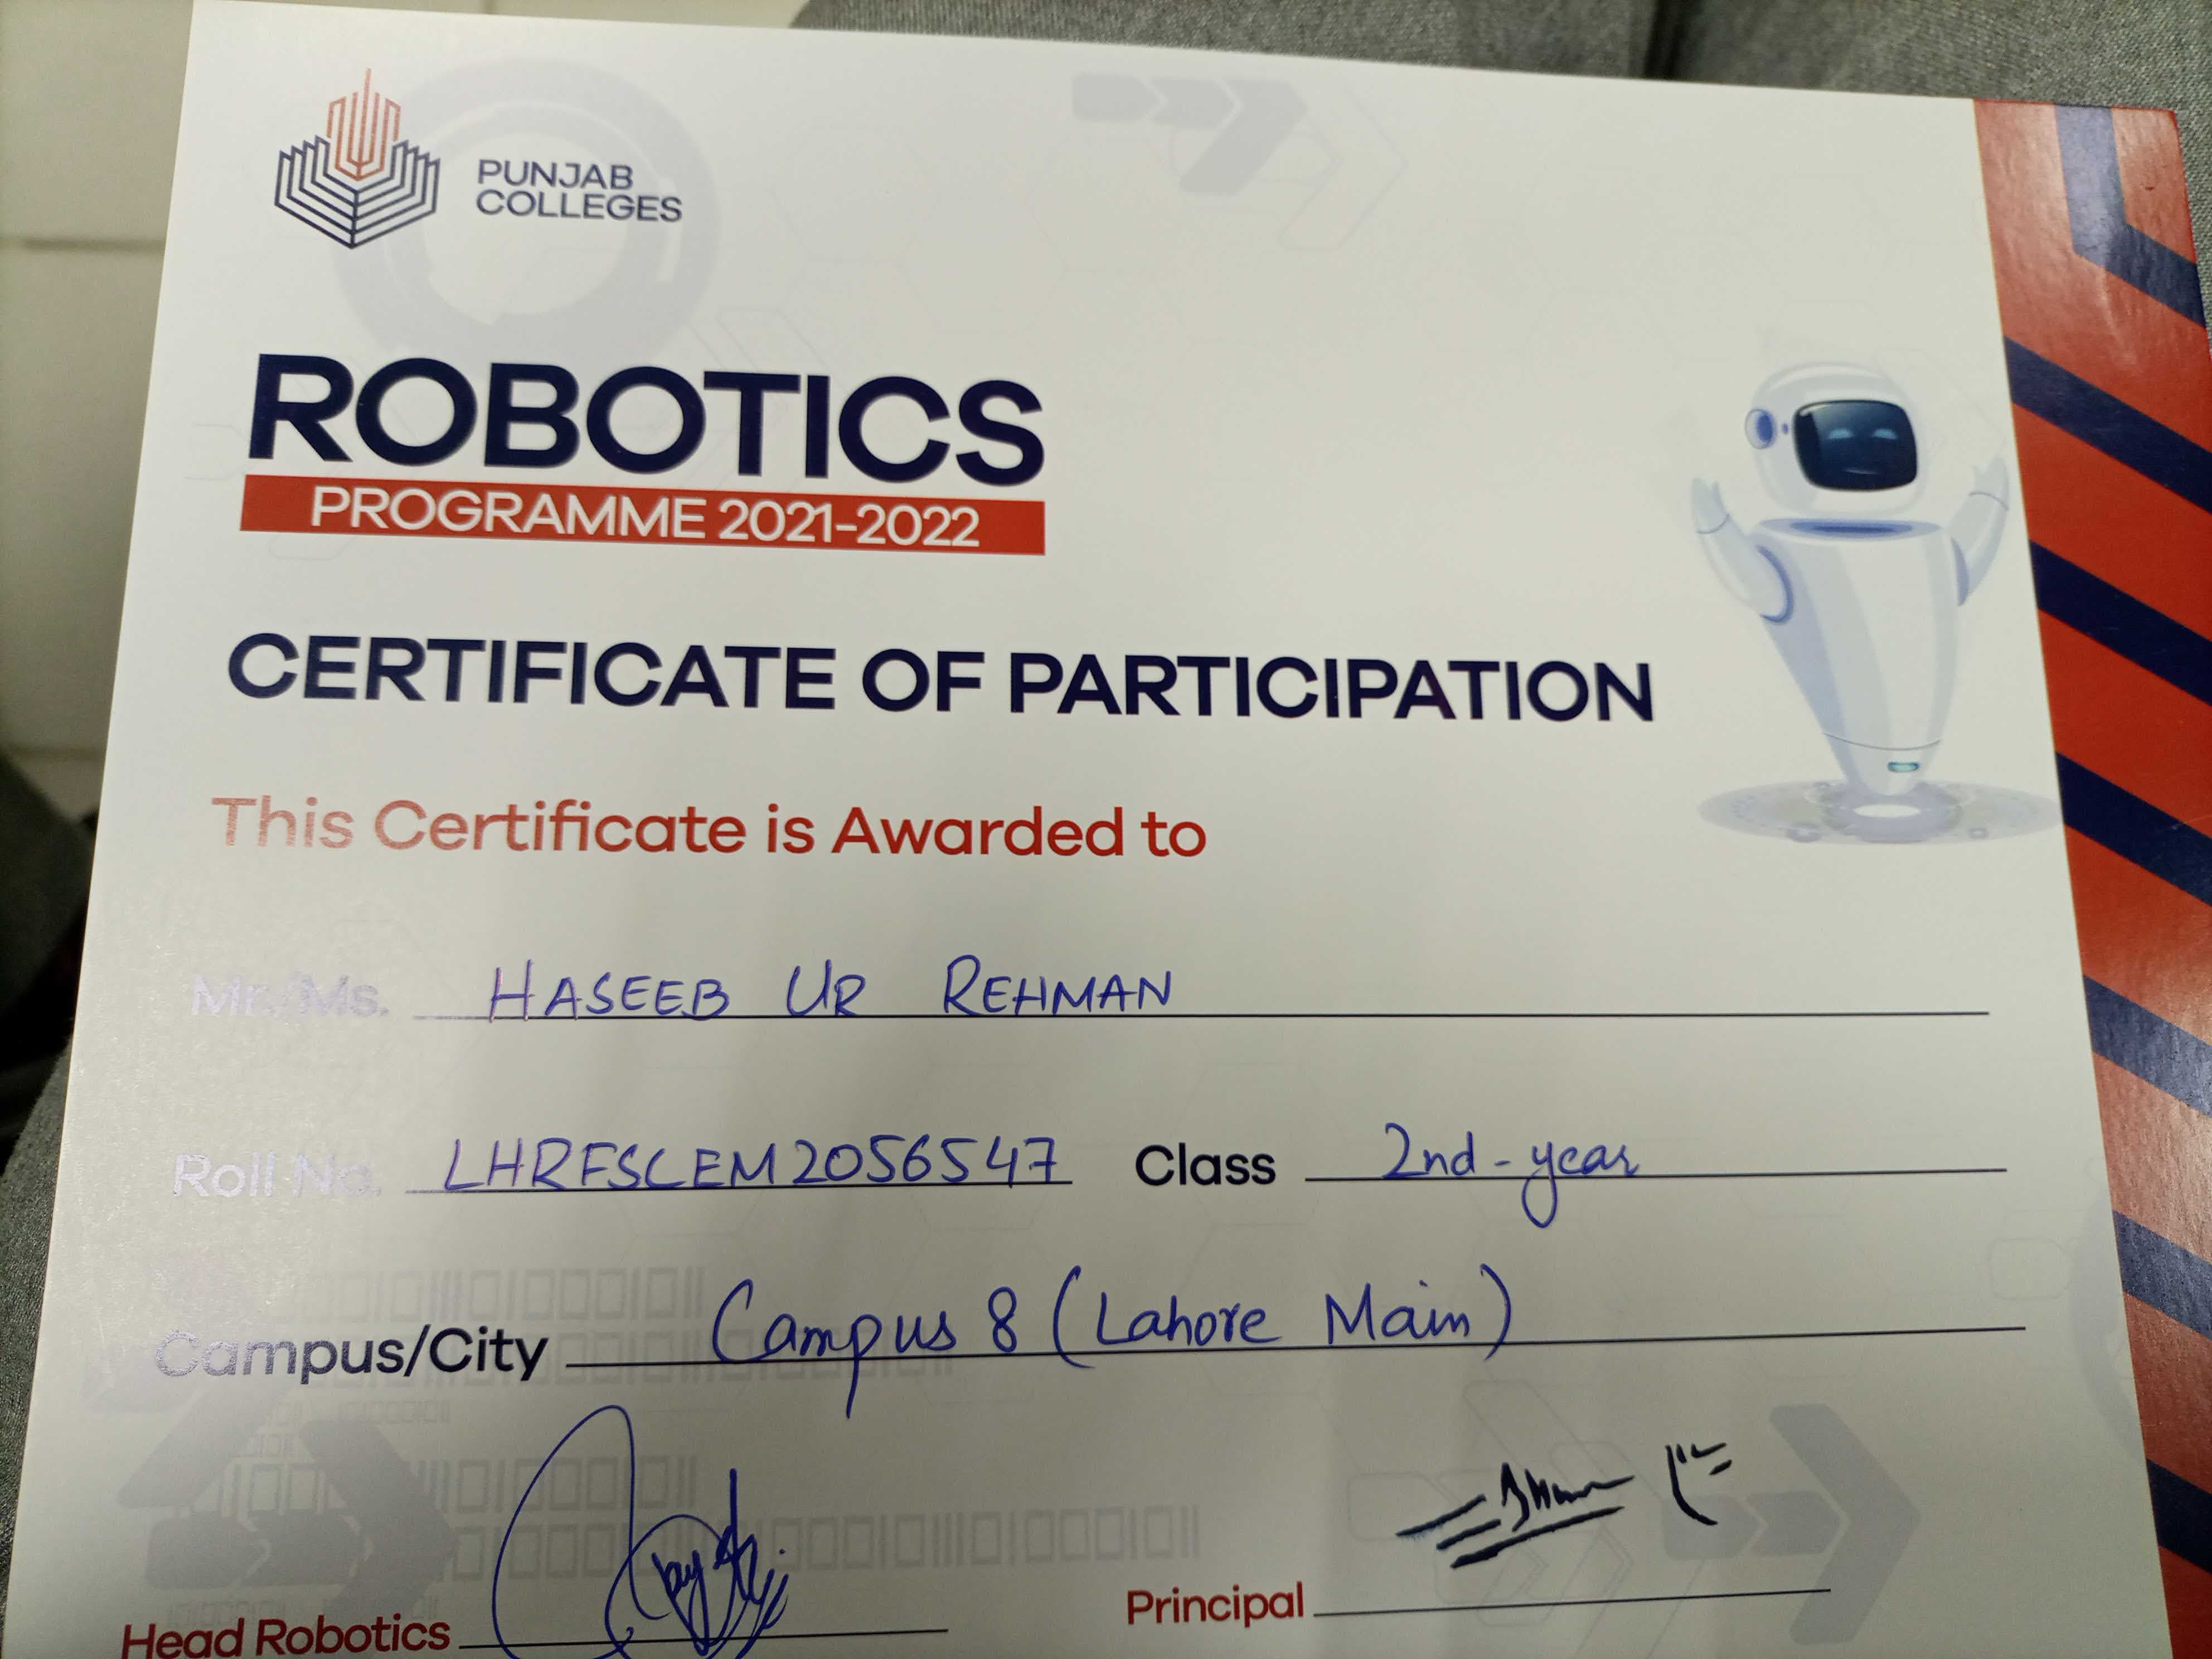 PUNJAB
COLLEGES
ROBOTICS
PROGRAMME 2021-2022
CERTIFICATE OF PARTICIPATION
This Certificate is Awarded to
Mr./Ms. HASEEB UR REHMAN
Roll No. LHRFSCEM2056547 Class 2nd-year
Campus/City Campus 8 (Lahore Main)
Head Robotics Principal